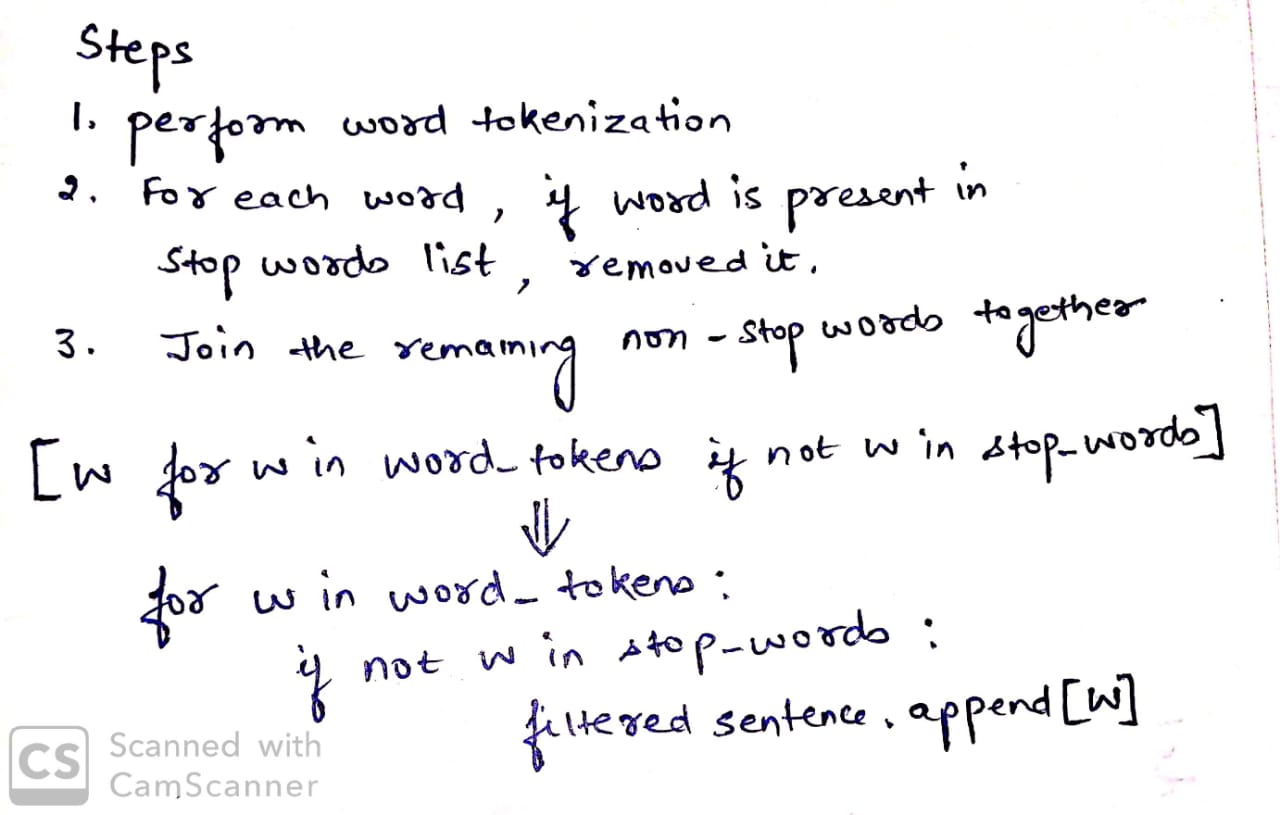 Steps
1. perform word tokenization
2. For each word, if word is present in
stop words list, removed it.
3. Join the remaining non-stop words together
[w for w in word_tokens if not w in stop_words]
⇓
for w in word_tokens :
if not w in stop_words :
filtered sentence. append [w]
CS Scanned with
CamScanner